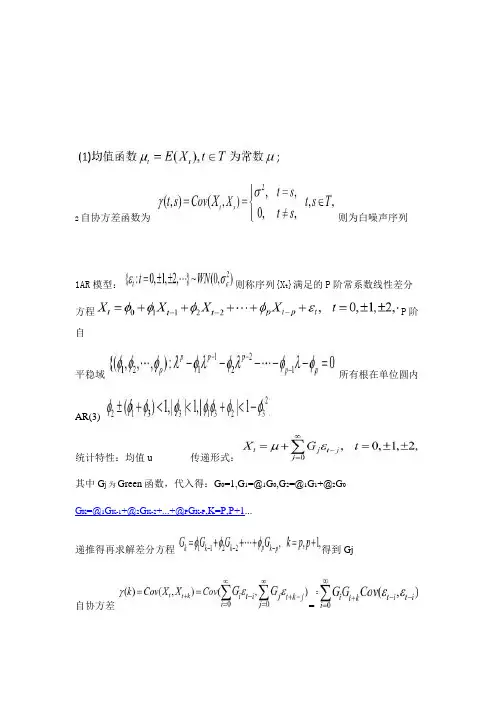 (1)均值函数 μ_t = E(X_t), t∈T 为常数 μ;
2自协方差函数为 γ(t,s) = Cov(X_t, X_s) = { σ², t = s, 0, t ≠ s, t,s∈T, 则为白噪声序列
1AR模型：{ε_t; t=0,±1,±2,⋯}~WN(0,σ_ε²) 则称序列{X_t}满足的P阶常系数线性差分
方程 X_t = φ_0 + φ_1 X_{t-1} + φ_2 X_{t-2} + ⋯ + φ_p X_{t-p} + ε_t, t = 0,±1,±2,⋯ P阶
自
平稳域 {(φ_1,φ_2,⋯,φ_p): λ^p − φ_1 λ^{p-1} − φ_2 λ^{p-2} − ⋯ − φ_{p-1} λ − φ_p = 0 所有根在单位圆内
AR(3) φ_2 ± (φ_1 + φ_3) < 1, |φ_3| < 1, |φ_1 φ_3 + φ_2| < 1 − φ_3²
统计特性：均值u 传递形式： X_t = μ + ∑_{j=0}^{∞} G_j ε_{t-j}, t = 0,±1,±2,
其中G_j为Green函数，代入得：G_0=1,G_1=@_1G_0,G_2=@_1G_1+@_2G_0
G_K=@_1G_{K-1}+@_2G_{K-2}+...+@_PG_{K-P},K=P,P+1...
递推得再求解差分方程 G_k = φ_1 G_{k-1} + φ_2 G_{k-2} + ⋯ + φ_p G_{k-p}, k = p, p+1, 得到Gj
自协方差 γ(k) = Cov(X_t, X_{t+k}) = Cov(∑_{i=0}^{∞} G_i ε_{t-i}, ∑_{j=0}^{∞} G_j ε_{t+k-j}) = = ∑_{i=0}^{∞} G_i G_{i+k} Cov(ε_{t-i}, ε_{t-i})